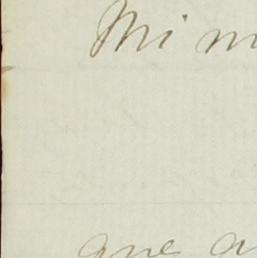 Mi m
que a